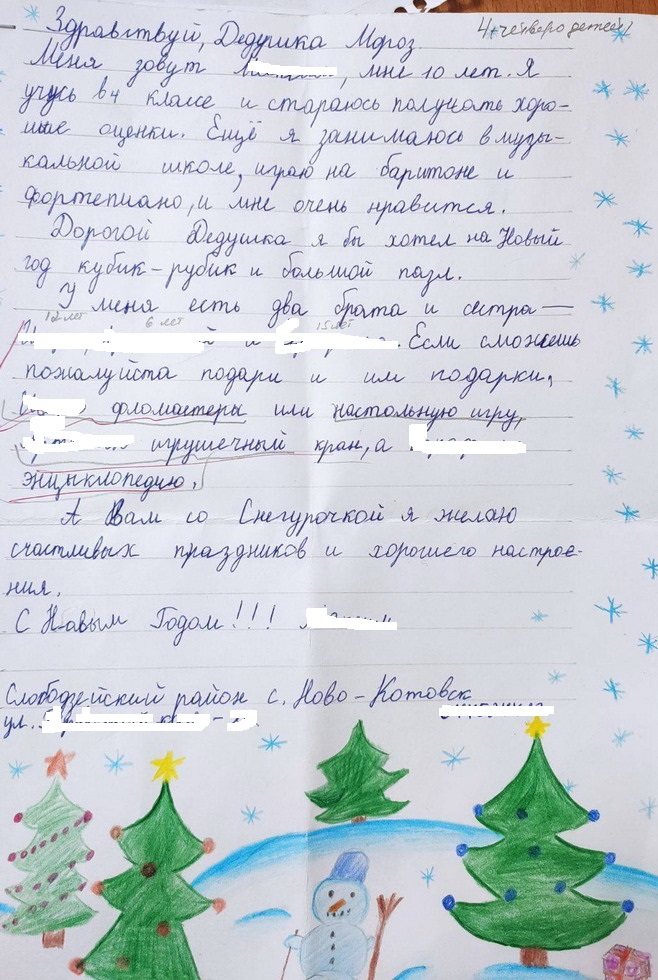 4 четверо детей!
Здравствуй, Дедушка Мороз.
Меня зовут , мне 10 лет. Я
учусь в 4 классе и стараюсь получать хоро-
шие оценки. Ещё я занимаюсь в музы-
кальной школе, играю на баритоне и
фортепиано, и мне очень нравится.
Дорогой Дедушка я бы хотел на Новый
год кубик-рубик и большой пазл.
У меня есть два брата и сестра—
12 лет 6 лет 15 лет
и . Если сможешь
пожалуйста подари и им подарки,
фломастеры или настольную игру,
игрушечный кран, а
энцыклопедию.
А Вам со Снегурочкой я желаю
счастливых праздников и хорошего настрое-
ния.
С Новым Годом!!!
Слободзейский район с. Ново-Котовск
ул.